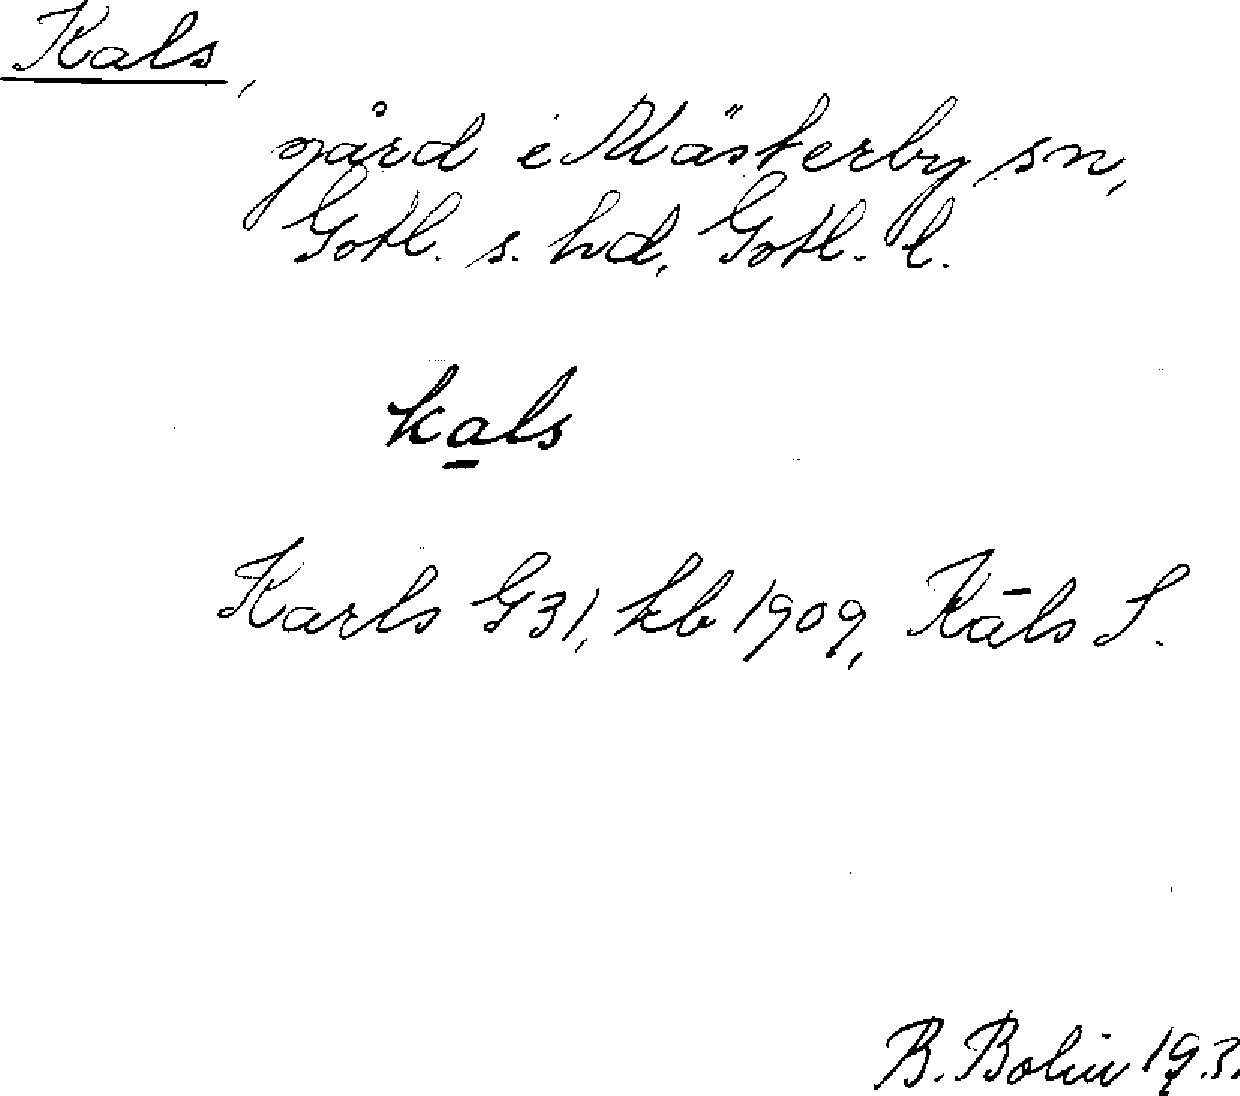 Kals,
gård i Mästerby sn,
Gotl. s. hd, Gotl. l.
kals
Karls G31, kb 1909, Kāls S.
B. Bolin 193.